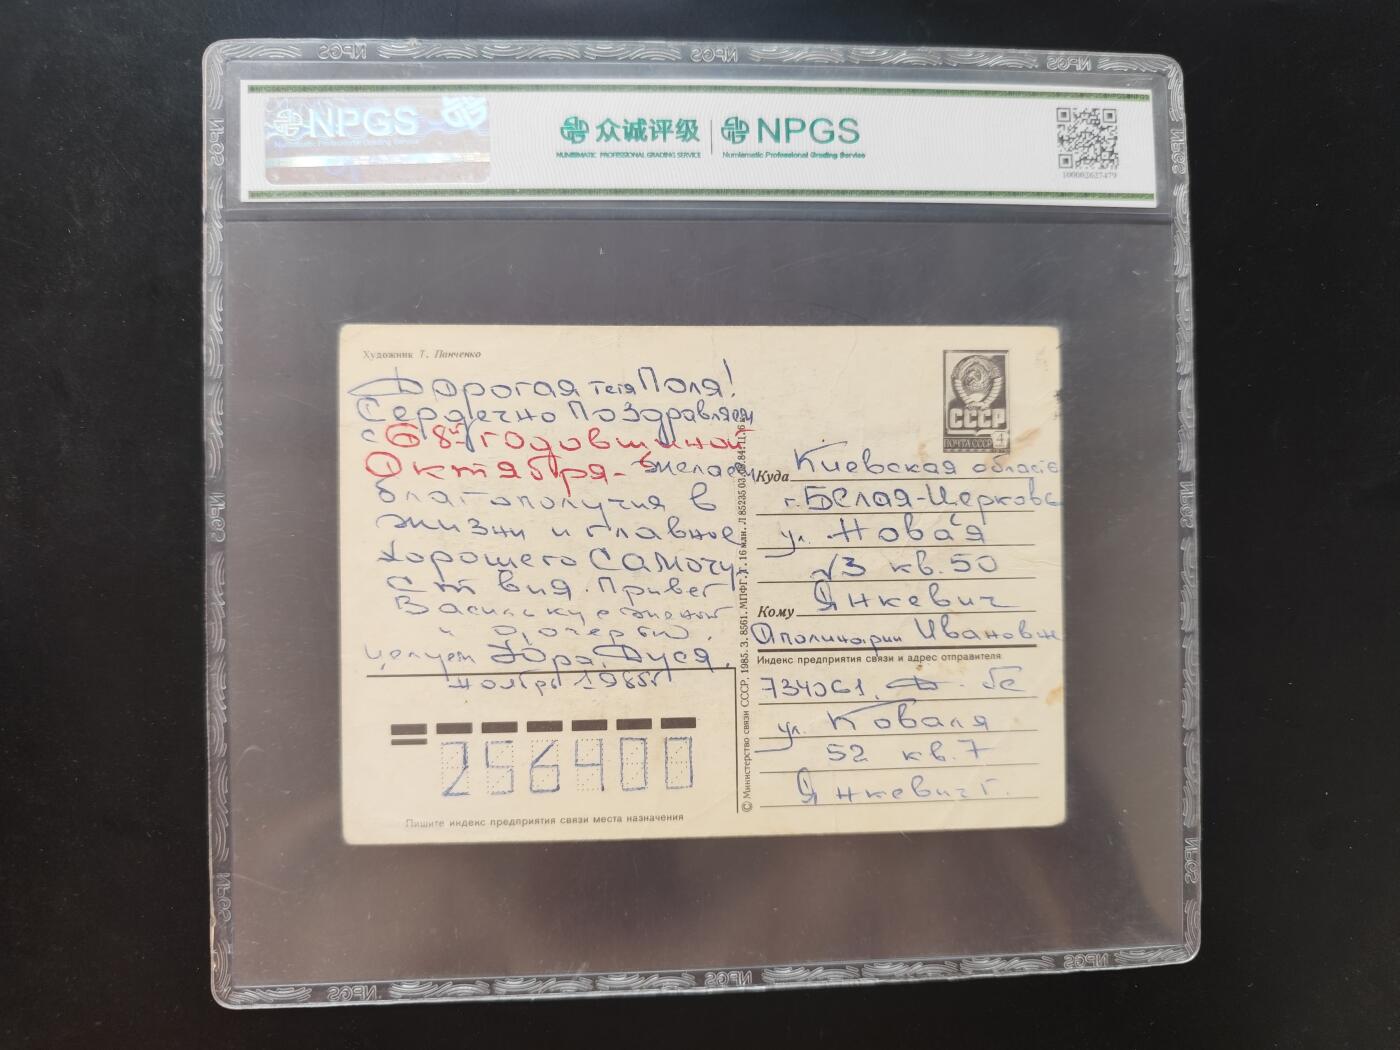 NPGS
Numismatic Professional Grading Service
众诚评级 NPGS
NUMISMATIC PROFESSIONAL GRADING SERVICE Numismatic Professional Grading Service
100002627479
Художник Т. Панченко
Дорогая тетя Поля!
Сердечно поздравляем
с 68й годовщиной
Октября - желаем
благополучия в
жизни и главное
хорошего самочу
ствия. Привет
Васильку с женой
и дочерью.
целуем Юра, Дуся.
ноябрь 1985г
256400
Пишите индекс предприятия связи места назначения
© Министерство связи СССР. 1985. З. 8561. МПФГ.
СССР
ПОЧТА СССР 4
Куда Киевская область
г. Белая-Церковь
ул. Новая
кв. 50
Кому Янкевич
Аполинарии Ивановне
Индекс предприятия связи и адрес отправителя
734061.
ул. Коваля
52 кв. 7
Янкевич Г.